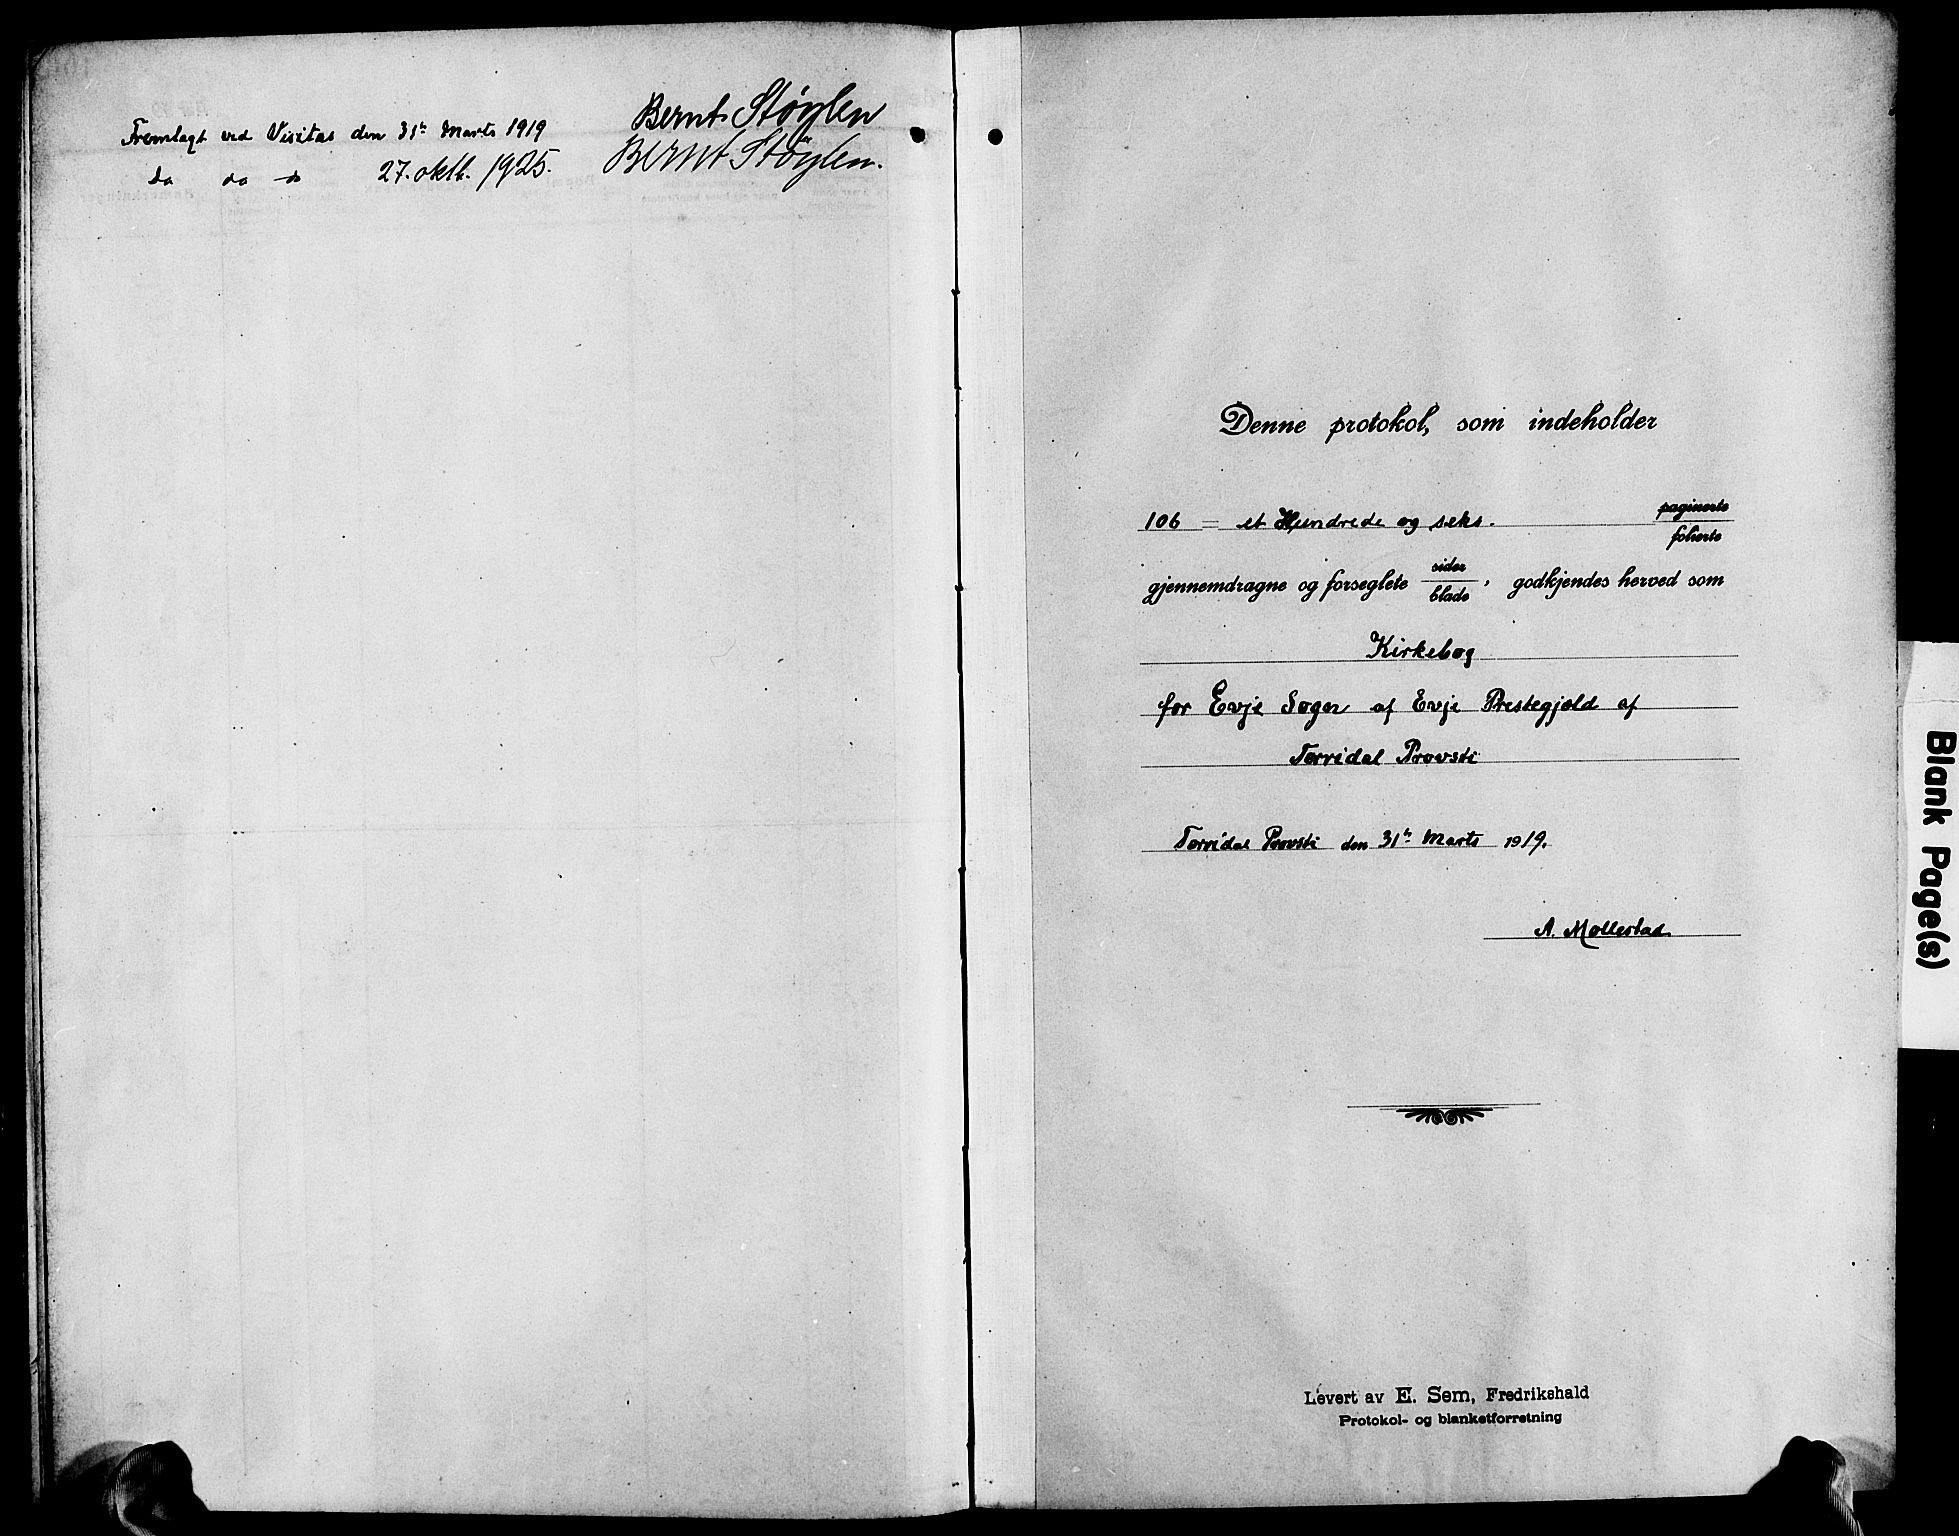 Fremlagt ved Visitas den 31te Marts 1919 Bernt Støylen
Do do do 27. oktb. 1925. Bernt Støylen.
Denne protokol, som indeholder
106 = et Hundrede og seks. paginerte
folierte
gjennemdragne og forseglete sider
blade, godkjendes herved som
Kirkebog
for Evje Sogn af Evje Prestegjæld af
Torridal Provsti
Torridal Provsti den 31te Marts 1919.
A. Mollestad
Levert av E. Sem, Fredrikshald
Protokol- og blanketforretning
Blank Page(s)